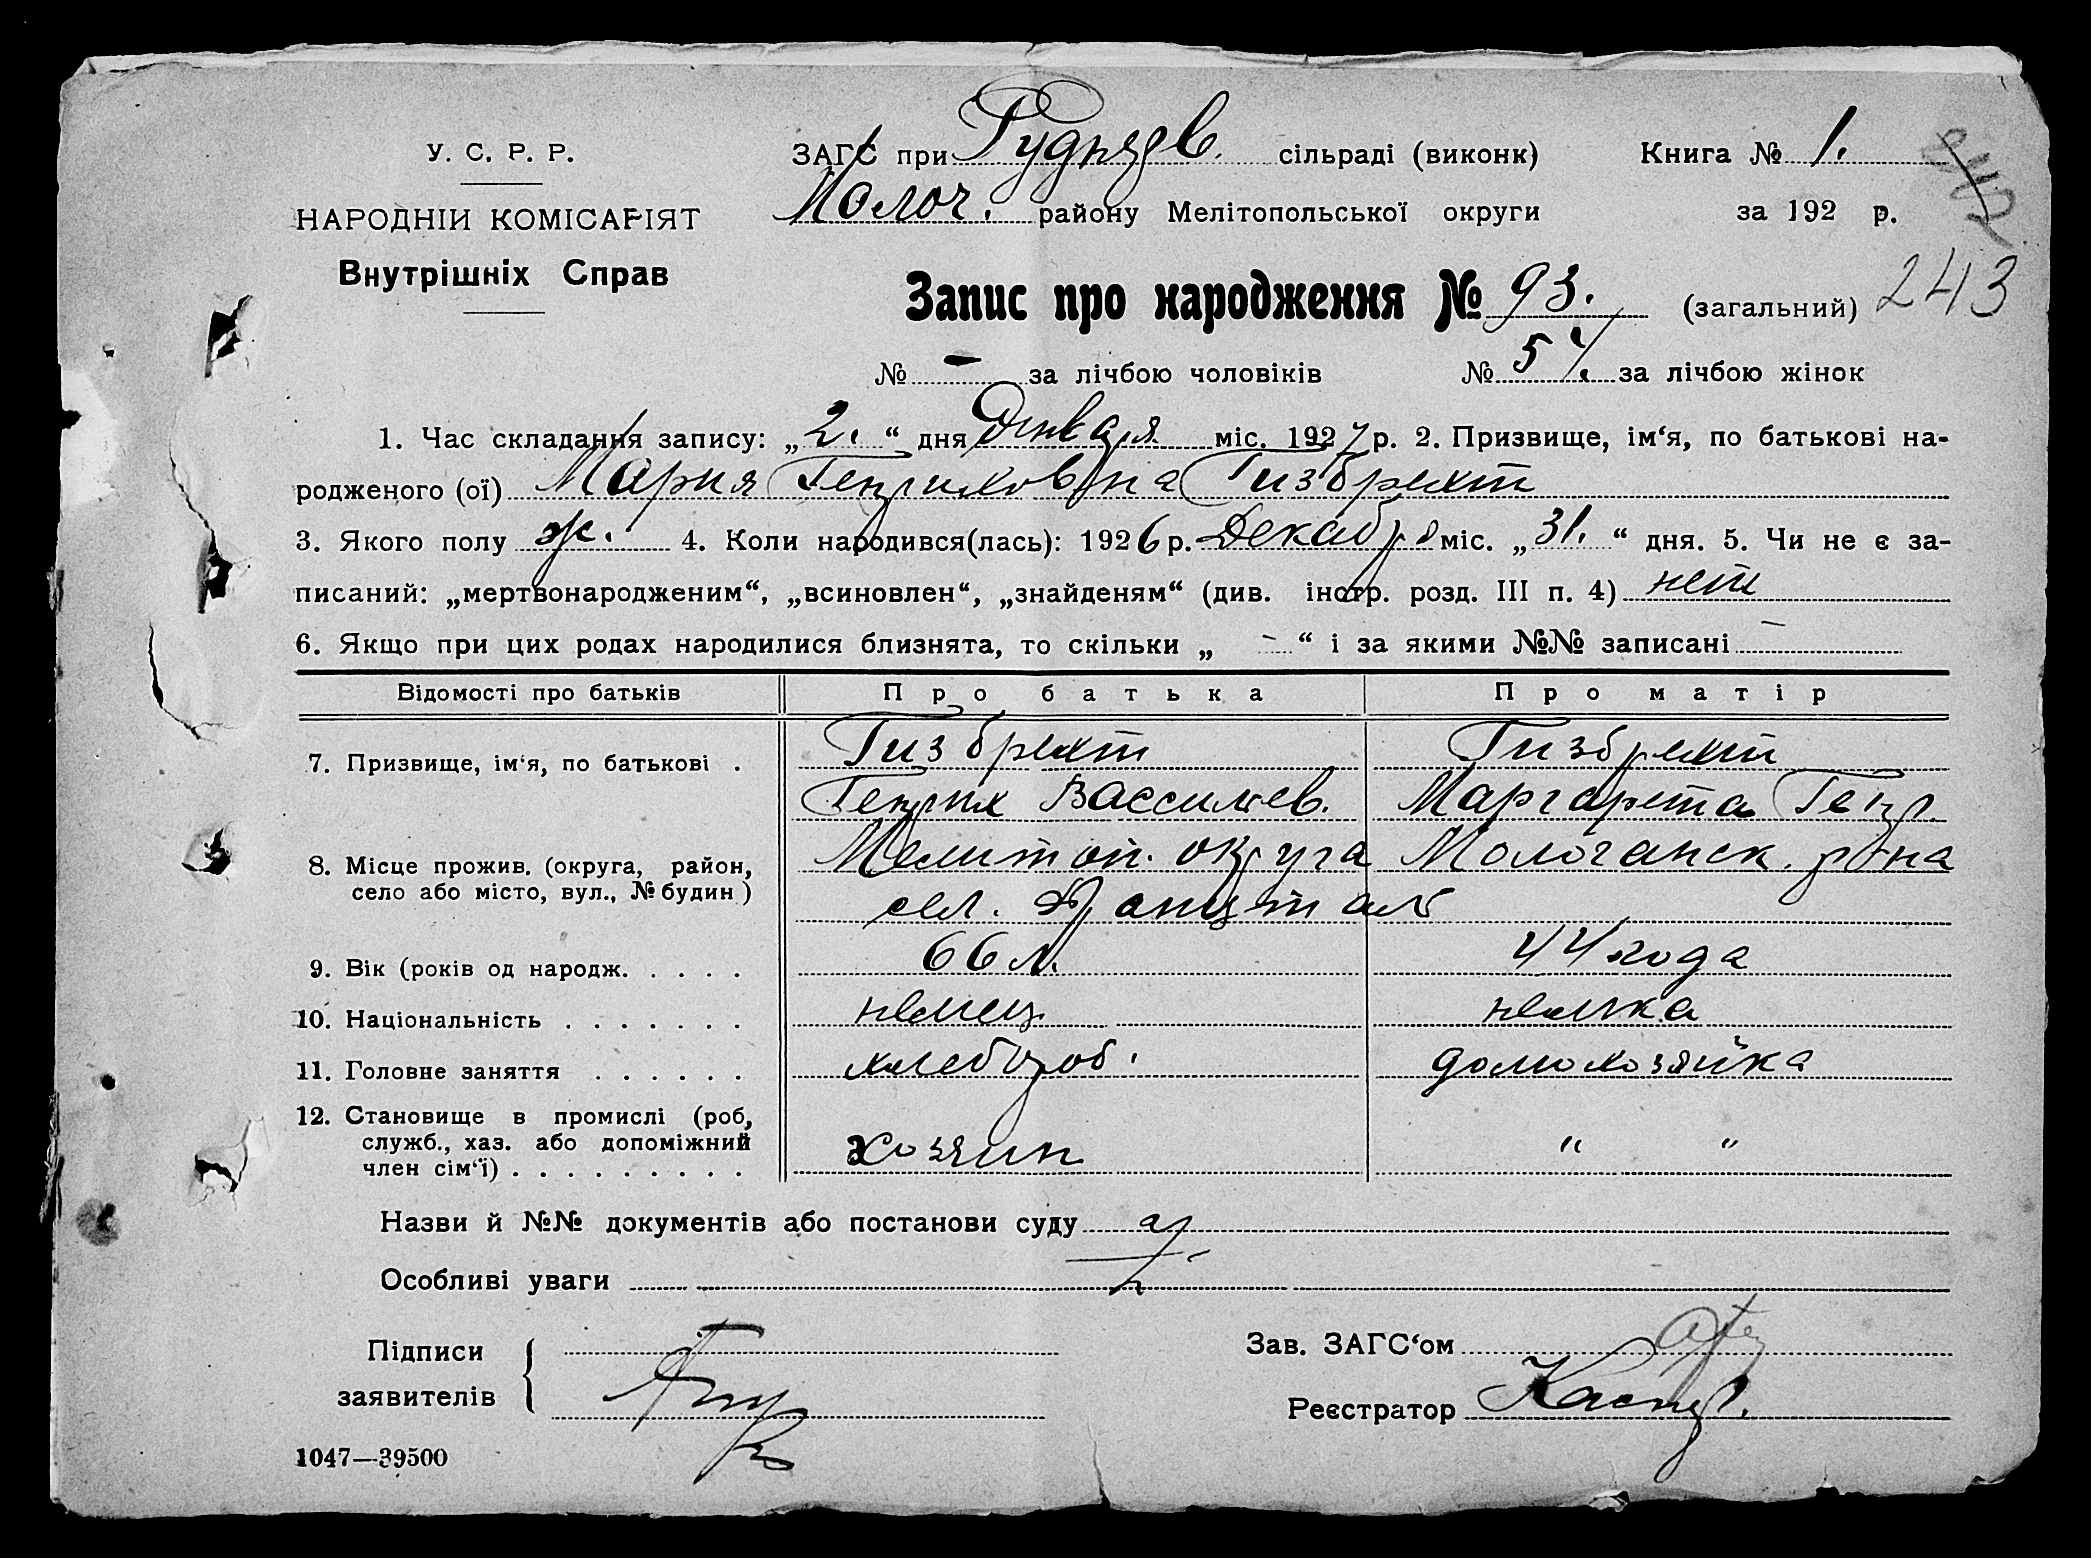 У. С. Р. Р.
НАРОДНІЙ КОМІСАРІЯТ
Внутрішніх Справ
ЗАГС при Рудняев. сільраді (виконк) Книга № 1.
Молоч. району Мелітопольської округи за 192 р.
242
Запис про народження № 93. (загальний) 243
№ - за лічбою чоловіків № 54. за лічбою жінок
1. Час складання запису: „2.“ дня Января міс. 1927 р. 2. Призвище, ім‘я, по батькові на-
родженого (ої) Мария Генриховна Гизбрехт
3. Якого полу ж. 4. Коли народився(лась): 1926 р. Декабря міс. „31.“ дня. 5. Чи не є за-
писаний: „мертвонародженим“, „всиновлен“, „знайденям“ (див. інстр. розд. III п. 4) нет
6. Якщо при цих родах народилися близнята, то скільки „ - “ і за якими №№ записані -
Відомості про батьків Про батька Про матір
7. Призвище, ім‘я, по батькові . Гизбрехт Гизбрехт
Генрих Вассилев. Маргарета Генр.
8. Місце прожив. (округа, район, Мелитоп. округа Молочанск. р-на
село або місто, вул., № будин) сел.
9. Вік (років од народж. . . . . 66 л. 44 года
10. Національність . . . . . . . немец немка
11. Головне заняття . . . . . . хлебороб. домохозяйка
12. Становище в промислі (роб,
служб., хаз. або допоміжний хозяин " "
член сім‘ї) . . . . . . . . .
Назви й №№ документів або постанови суду
Особливі уваги
Підписи
заявителів
Зав. ЗАГС‘ом
Реєстратор Каспер.
1047—39500